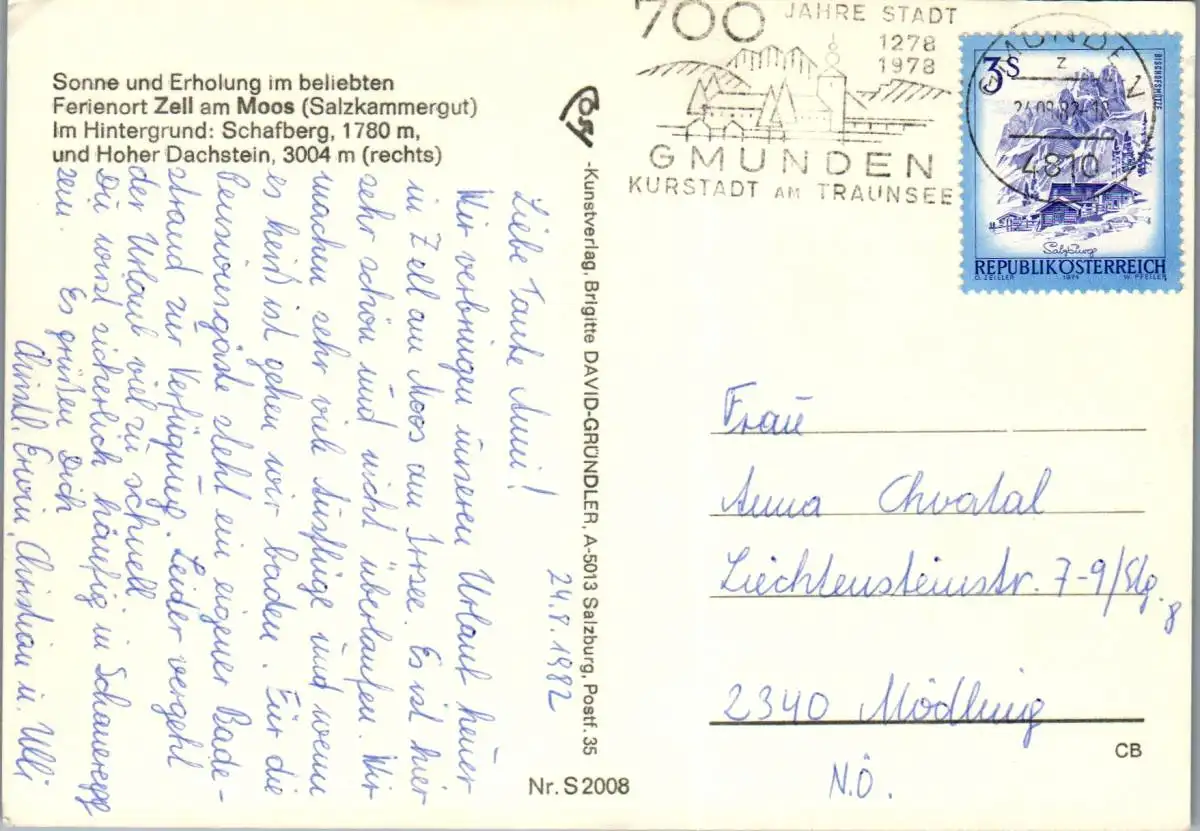 Sonne und Erholung im beliebten
Ferienort Zell am Moos (Salzkammergut)
Im Hintergrund: Schafberg, 1780 m,
und Hoher Dachstein, 3004 m (rechts)
24.8.1982
Liebe Tante Anni!
Wir verbringen unseren Urlaub heuer
in Zell am Moos am Irrsee. Es ist hier
sehr schön und nicht überlaufen. Wir
machen sehr viele Ausflüge und wenn
es heiß ist gehen wir baden. Für die
Pensionsgäste steht ein eigener Bade-
strand zur Verfügung. Leider vergeht
der Urlaub viel zu schnell
Du wirst sicherlich häufig in Schaueregg
sein. Es grüßen Dich
Christl, Erwin, Christian u. Ulli
-Kunstverlag, Brigitte DAVID-GRÜNDLER, A-5013 Salzburg, Postf. 35
Nr. S 2008
700 JAHRE STADT
1278
1978
GMUNDEN
KURSTADT AM TRAUNSEE
GMUNDEN
z
24.08.82-18
4810
3S
BISCHOFSMÜTZE
Salzburg
REPUBLIK ÖSTERREICH
O. ZEILLER 1974 W. PFEILER
Frau
Anna Chvatal
Liechtensteinstr. 7-9/Stg.
8
2340 Mödling
N.Ö.
CB